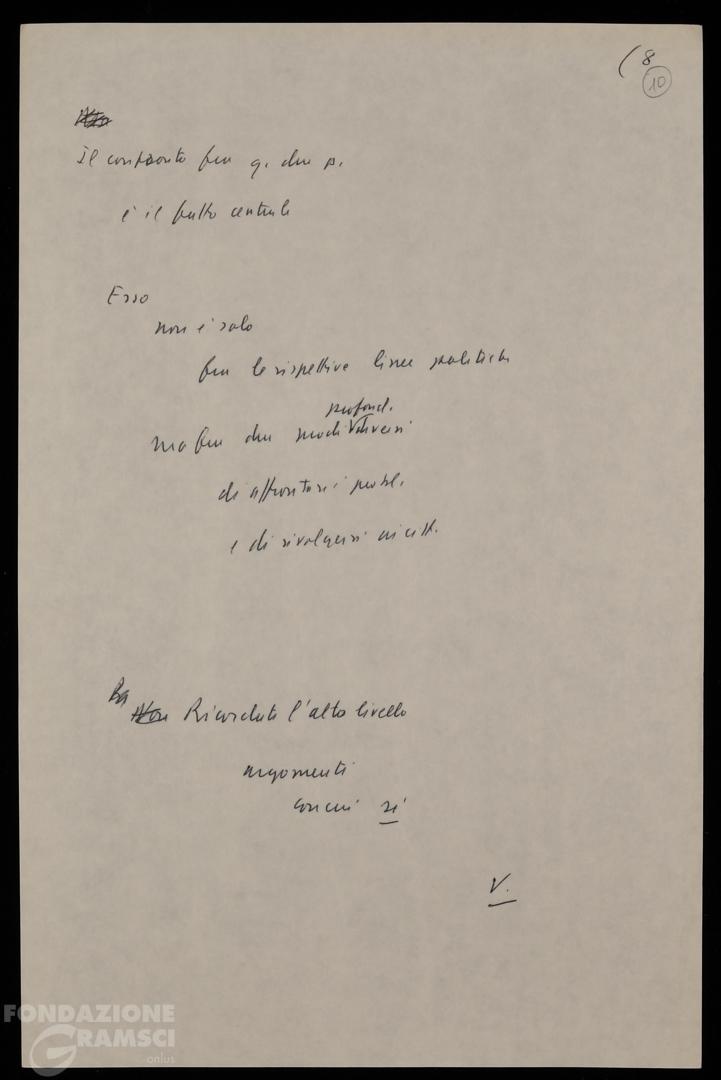 (8
10
Il confronto fra q. due p.
è il fatto centrale
Esso
non è solo
fra le rispettive linee politiche
profond.
ma fra due modi diversi
di affrontare i probl.
e di rivolgersi ai citt.
Ricordate l'alto livello
argomenti
con cui si
V.
FONDAZIONE
GRAMSCI
onlus